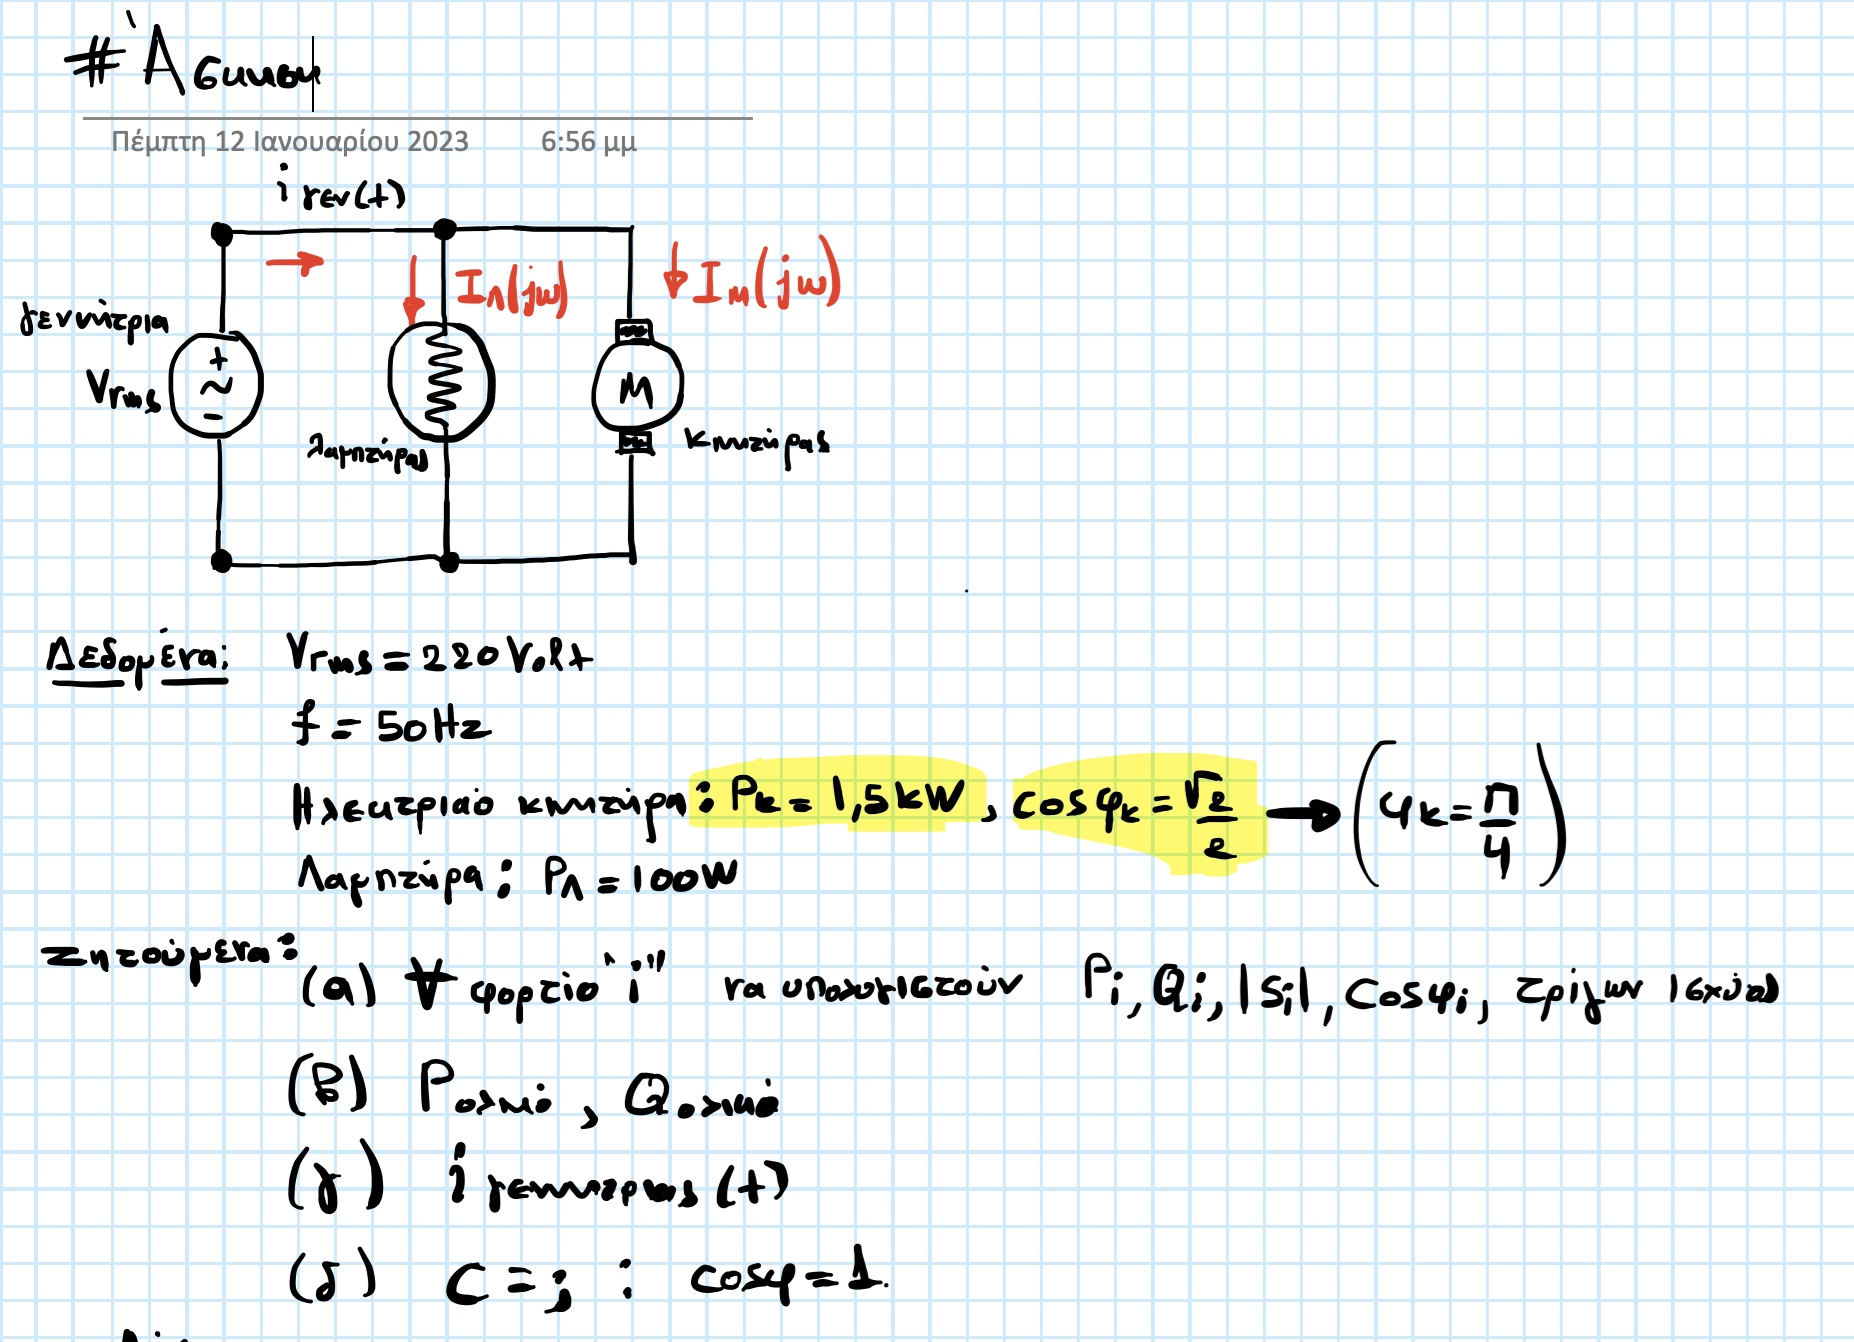 # Άσκηση
Πέμπτη 12 Ιανουαρίου 2023 6:56 μμ
i γεν(t)
I_Λ(jω) I_M(jω)
γεννήτρια
+
~
-
V_rms
M
λαμπτήρας
κινητήρας
Δεδομένα: V_rms = 220 Volt
f = 50 Hz
Ηλεκτρικό κινητήρα: P_k = 1,5 kW, cosφ_k = √2/2 → (φ_k = π/4)
Λαμπτήρα: P_Λ = 100W
Ζητούμενα:
(α) ∀ φορτίο "i" να υπολογιστούν P_i, Q_i, |S_i|, cosφ_i, τρίγων ισχύος
(β) P_ολικό, Q_ολικό
(γ) i γεννητριας (t)
(δ) C = ; : cosφ = 1.